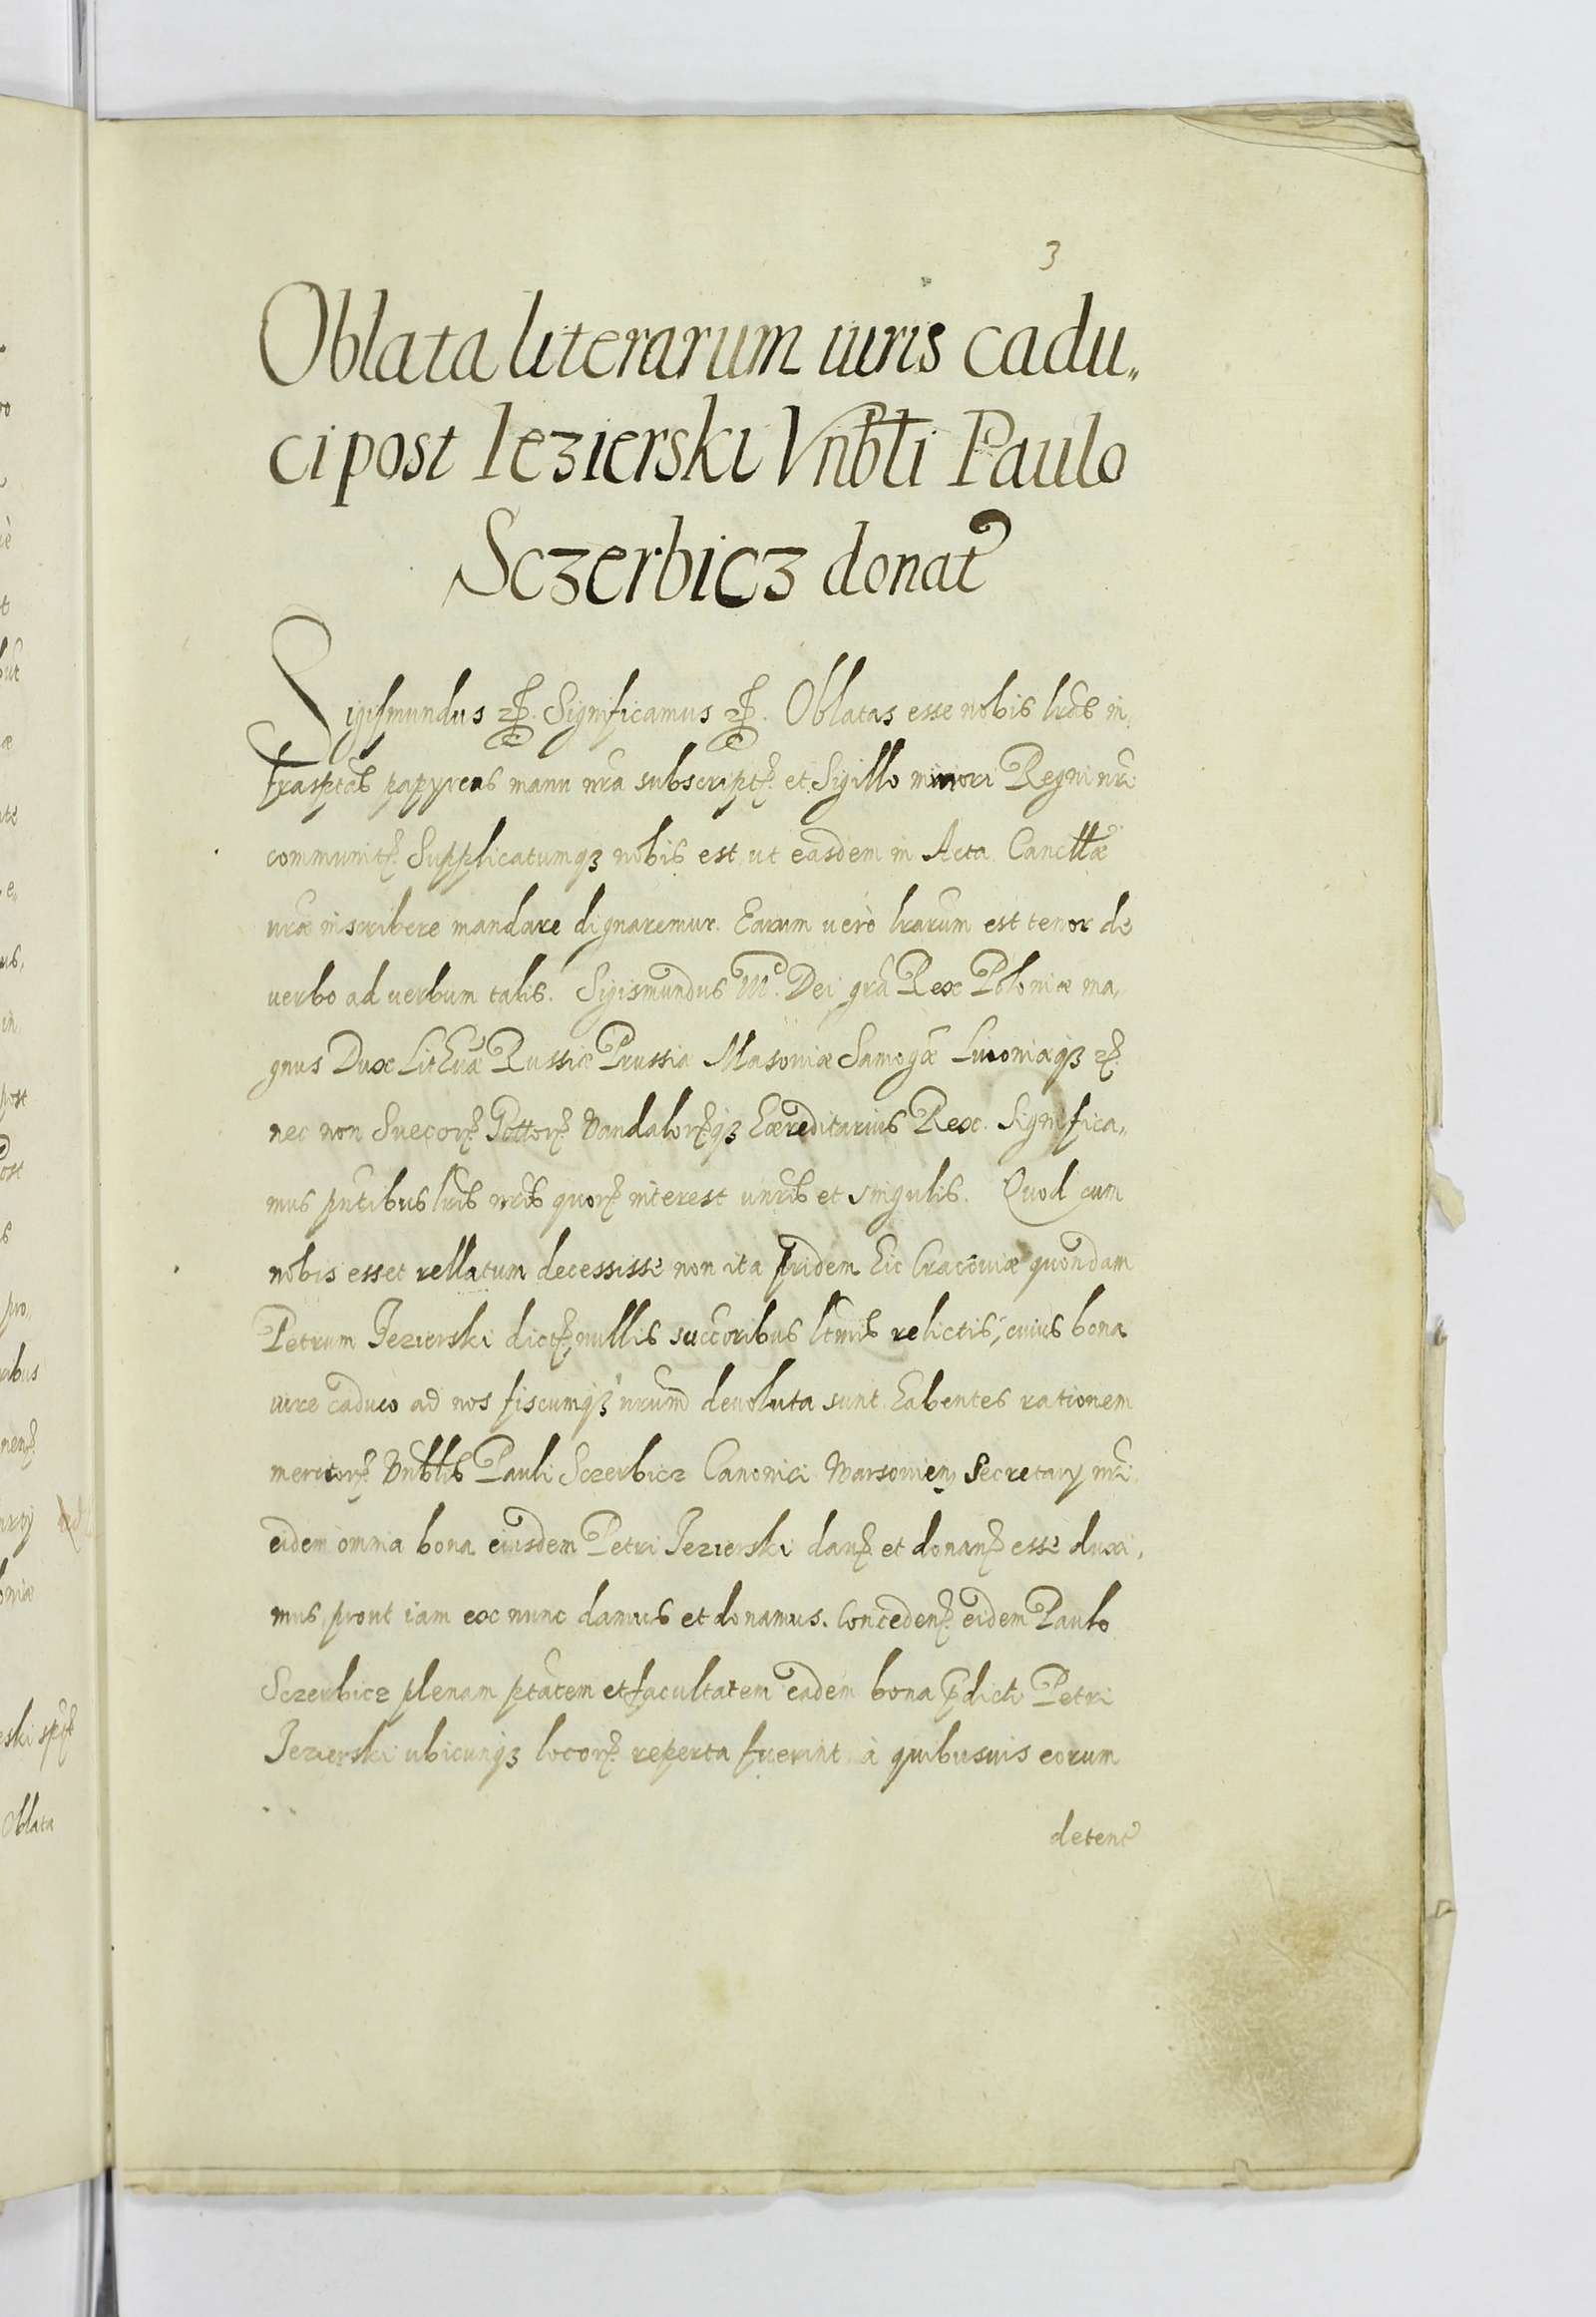 3
Oblata literarum iuris cadu„
ci post Iezierski Vnbli Paulo
Sczerbicz donat
Sigismundus etc. Significamus etc. Oblatas esse nobis lras in,
frascptas papyreas manu nra subscript. et Sigillo minori Regni nri
communit. Supplicatumq3 nobis est, ut easdem in Acta Cancllæ
nræ inscribere mandare dignaremur. Earum verò lrarum est tenor de
verbo ad verbum talis. Sigismundus III. Dei gra Rex Poloniæ ma,
gnus Dux Lithuæ Russiæ Prussiæ Masoviæ Samogæ Livoniæq3 etc.
nec non Suecor. Gottor. Vandalor.q3 hæreditarius Rex. Significa„
mus pntibus lris nris quor. interest unris et singulis. Quod cum
nobis esset rellatum decessisse non ita pridem hic Cracoviæ quondam
Petrum Jezierski dict. nullis succoribus ltmis relictis, cuius bona
iure caduco ad nos fiscumq3 nrum devoluta sunt, habentes rationem
meritor. Vnblis Pauli Sczerbicz Canonici Varsovien Secretary nri
eidem omnia bona eiusdem Petri Jezierski dan. et donan. esse duxi,
mus, prout iam ex nunc damus et donamus. Conceden. eidem Paulo
Sczerbicz plenam ptatem et facultatem eadem bona pdicti Petri
Jezierski ubicunq3 locor. reperta fuerint à quibusvis eorum
detent
post
pro,
Oblata